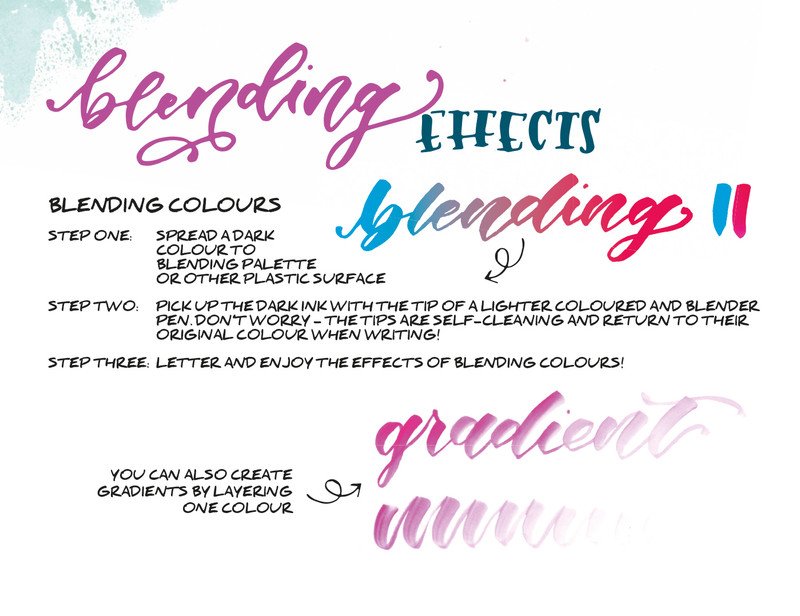 blending EFFECTS
BLENDING COLOURS
blending
STEP ONE: SPREAD A DARK
COLOUR TO
BLENDING PALETTE
OR OTHER PLASTIC SURFACE
STEP TWO: PICK UP THE DARK INK WITH THE TIP OF A LIGHTER COLOURED AND BLENDER
PEN. DON'T WORRY - THE TIPS ARE SELF-CLEANING AND RETURN TO THEIR
ORIGINAL COLOUR WHEN WRITING!
STEP THREE: LETTER AND ENJOY THE EFFECTS OF BLENDING COLOURS!
gradient
YOU CAN ALSO CREATE
GRADIENTS BY LAYERING
ONE COLOUR